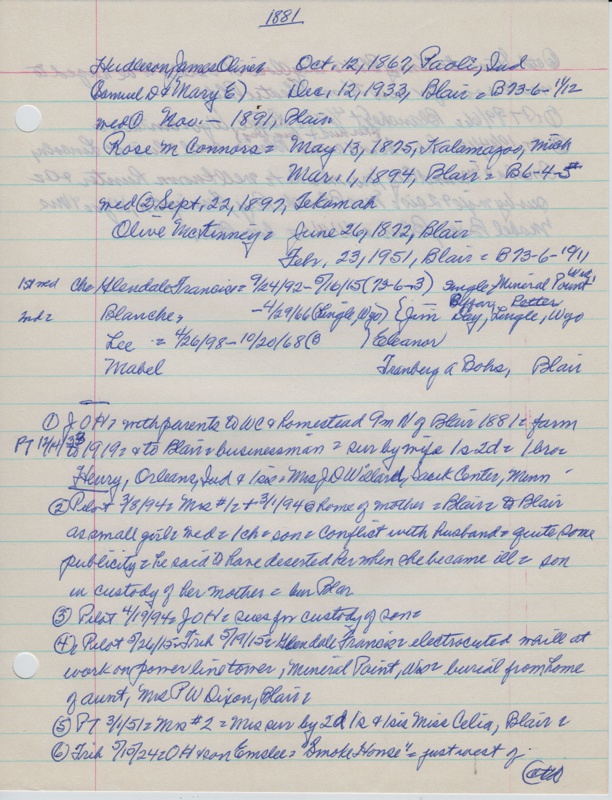 1881
Hudleson, James Oliver Oct. 12, 1867, Paoli, Ind
(Samuel D & Mary E) Dec, 12, 1933, Blair = B73-6-11/12
med ① Nov. — 1891, Blair
Rose M Connors = May 13, 1875, Kalamazoo, Mich
Mar. 1, 1894, Blair = B6-4-5
med ② Sept. 22, 1897, Tekamah
Olive McKinney = June 26, 1872, Blair
Febr, 23, 1951, Blair = B73-6-10/11
1st med Ch = Glendale Francis = 9/24/92 - 5/16/15 (73-6-3) single, Mineral Point
2nd = Blanche, - 4/29/66 (Lingle, Wyo) { Jim Day, Lingle, Wyo
Lee = 4/26/98 - 10/20/68 (B ) Eleanor
Mabel A Bohs, Blair
① J O H = with parents to WC & homestead 9m N of Blair 1881 = farm
PT 12/14/33 to 1919 = & to Blair = businessman = sur by wife 1s 2d = 1 bro =
Henry, Orleans, Ind & 1 sis = Mrs J D Willard, Sauk Center, Minn
② Pilot 3/8/94 = Mrs #1 = + 3/1/94 @ home of mother = Blair = to Blair
as small girl = med = 1ch = son = conflict with husband = quite some
publicity = he said to have deserted her when she became ill = son
in custody of her mother = bur Blair
③ Pilot 4/19/94 = J O H = sues for custody of son =
④ Pilot 5/26/15 = Trib 5/19/15 = Glendale Francis = electrocuted while at
work on power line tower, Mineral Point, = burial from home
of aunt, Mrs P W Dixon, Blair =
⑤ PT 3/1/51 = Mrs #2 = Mrs sur by 2d 1s & 1 sis Miss Celia, Blair =
⑥ Trib 5/15/24 = O H & son Emslee = "Smoke House" = just west of